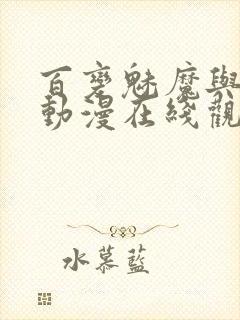 百变魅魔與
動漫在綫觀
水慕藍